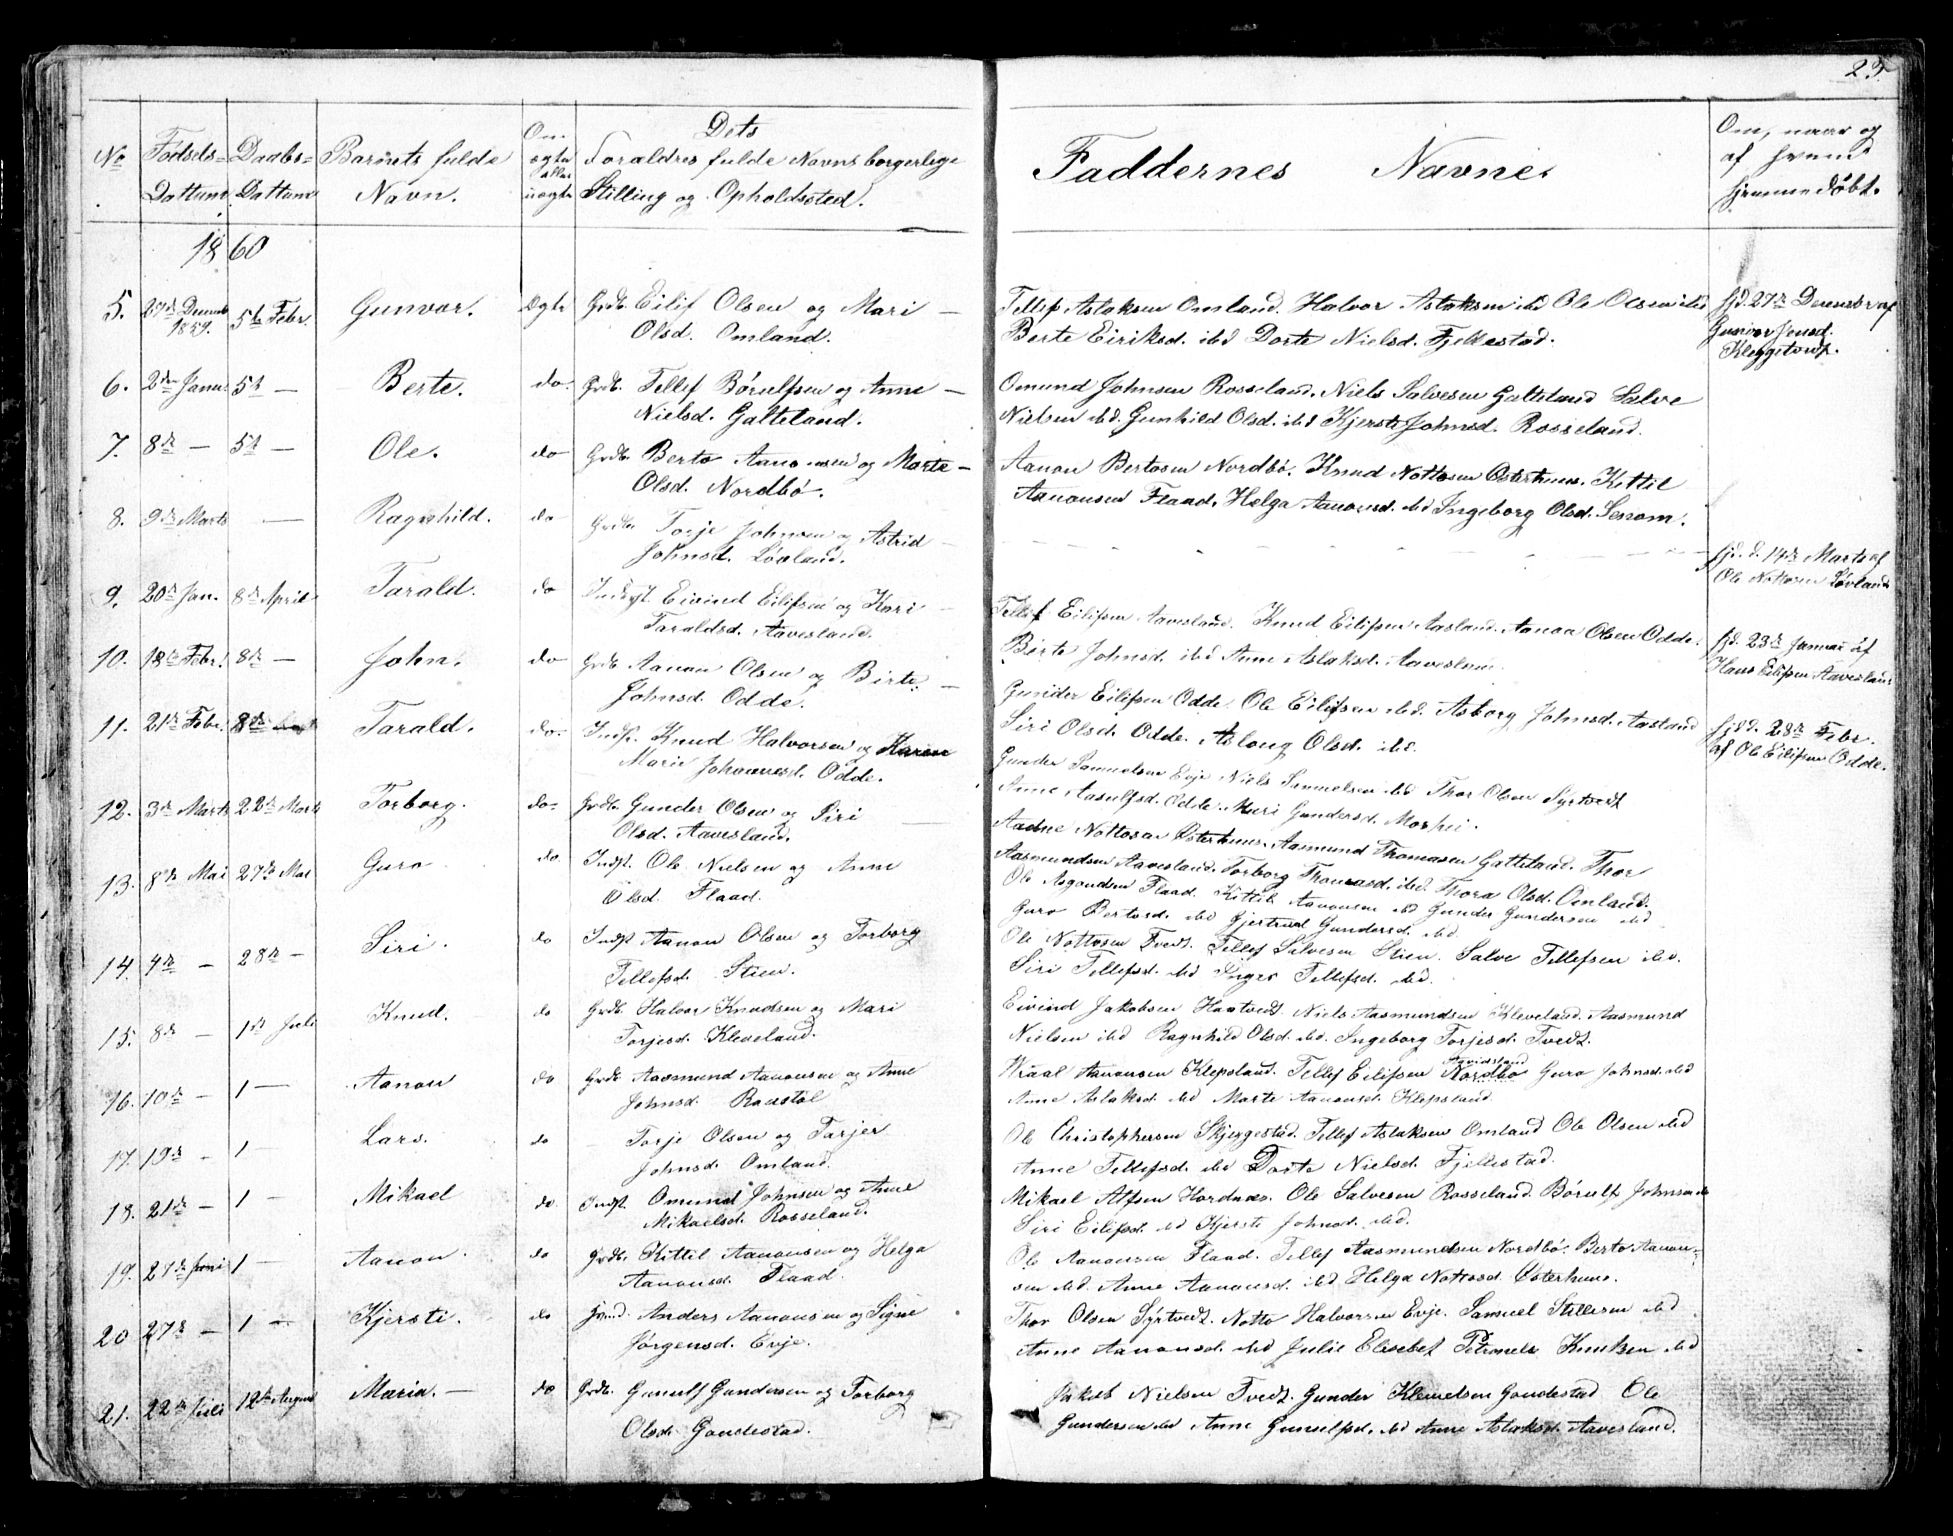 23.
No
Fødsels-
Dattum
Daabs-
Dattum
Barnets fulde
Navn.
Om
ægte
eller
uægte
Dets
Forældres fulde Navns borgerlige
Stilling og Opholdssted.
Faddernes Navne.
Om, naar og
af hvem
hjemmedøbt.
1860
5. 27de Decemb 1859. 5te Febr. Gunvor. Ægte Grdb. Eilif Olsen og Mari —
Olsd. Omland.
Tellef Aslaksen Omland. Halvor Aslaksen ibd Ole Olsen ibd
Berte Eiriksd. ibd Dorte Nielsd. Fjellestad.
hjd. 27de Decembr af
Gunvor Jensd.
6. 2den Janu. 5te — Berte. do. Grdb. Tellef Børulfsen og Anne —
Nielsd. Galteland.
Omund Johnsen Rosseland. Niels Salvesen Galteland Salve
Nielsen ibd. Gunhild Olsd. ibd Kjersti Johnsd. Rosseland.
7. 8de — 5te — Ole. do Grdb. Berto Aanonsen og Marte —
Olsd. Nordbø.
Aanon Bertosen Nordbø. Knud Nottosen Østerhuus. Kittil
Aanonsen Flaad. Helga Aanonsd. ibd Ingeborg Olsd. Senom.
8. 9de Marts — Ragnhild. do Grdb. Torje Johnsen og Astrid —
Johnsd. Løvland.
hjd. d. 14de Marts af
Ole Nottosen Løvland
9. 20de Jan. 8de April Tarald. do Indst. Eivind Eilifsen og Kari —
Taraldsd. Aavesland.
Tellef Eilifsen Aavesland. Knud Eilifsen Aasland. Aanon Olsen Odde.
Børte Johnsd. ibd Anne Aslaksd. Aavesland.
hjd. 23de Januar af
Hans Eilifsen Aavesland
10. 18de Febr. 8de — John. do Grdb. Aanon Olsen og Birte —
Johnsd. Odde.
Gunder Eilifsen Odde. Ole Eilifsen ibd. Asborg Johnsd. Aasland
Siri Olsd. Odde. Aslaug Olsd. ibd.
hjd. d. 28de Febr.
af Ole Eilifsen Odde.
11. 21de Febr. 8de Tarald. do. Indst. Knud Halvorsen og Karen
Marie Johannesd. Odde.
Gunder Samuelsen Evje Niels Samuelsen ibd Thor Olsen Syrtvedt
Anne Aasulfsd. Odde. Mari Gundersd. Moshei.
12. 3de Marts 22de Marts Torborg. do. Grdb. Gunder Olsen og Siri —
Olsd. Aavesland.
Aadne Nottosen Østerhuus. Aasmund Thomasen Galteland. Thor
Aasmundsen Aavesland. Torborg Thomasd. ibd. Thora Olsd. Omland.
13. 8de Mai 27de Mai Guro do Indst. Ole Nielsen og Anne
Olsd. Flaad.
Ole Asgundsen Flaad. Kittil Aanonsen ibd Gunder Gundersen ibd
Guro Bertosd. ibd Gjertrud Gundersd. ibd
14. 4de — 28de — Siri. do Indst Aanon Olsen og Torborg
Tellefsd. Stien.
Ole Nottosen Tvedt. Tellef Salvesen Stien. Salve Tellefsen ibd.
Siri Tellefsd. ibd Inger Tellefsd. ibd.
15. 8de — 1ste Juli Knud. do Grdb. Halvor Knudsen og Mari
Torjesd. Kleveland.
Eivind Jakobsen Haatvedt. Niels Aasmundsen Kleveland. Aasmund
Nielsen ibd Ragnhild Olsd. ibd. Ingeborg Torjesd. Tvedt.
16. 10de — 1 — Aanon do Grdb. Aasmund Aanonsen og Anne
Johnsd. Raustøl
Wraal Aanonsen Klepsland. Tellef Eilifsen Nordbø Guro Johnsd. ibd
Anne Aslaksd. ibd Marte Aanonsd. Klepsland
17. 19de — 1 — Lars. do — Torje Olsen og Tarjer
Johnsd. Omland.
Ole Christophersen Skjeggestad. Tellef Aslaksen Omland Ole Olsen ibd
Anne Tellefsd. ibd Dorte Nielsd. Fjellestad.
18. 21de — 1 — Mikael do Indst. Omund Johnsen og Anne
Mikaelsd. Rosseland.
Mikael Alfsen Hordnes. Ole Salvesen Rosseland. Børulf Johnsen ibd
Siri Eilifsd. ibd Kjersti Johnsd. ibd.
19. 27de Juni 1 — Aanon. do Grdb. Kittil Aanonsen og Helga
Aanonsd. Flaad.
Ole Aanonsen Flaad. Tellef Aasmundsen Nordbø. Berto Aanon-
sen ibd. Anne Aanonsd. ibd Helga Nottosd. Østerhuus.
20 27de — 1 — Kjersti. do Anders Aanonsen og Signe
Jørgensd. Evje.
Thor Olsen Syrtvedt. Notto Halvorsen Evje. Samuel Stillersen ibd
Anne Aanonsd. ibd Julie Elisebet Petronele Knudsen ibd
21. 22de Juli 12te August Maria. — do Grdb. Gunulf Gundersen og Torborg
Olsd. Gaudestad.
Jakob Nielsen Tvedt. Gunder Klemetsen Gaudestad Ole
Gundersen ibd Anne Gunulfsd. ibd Anne Aslaksd. Aavesland.